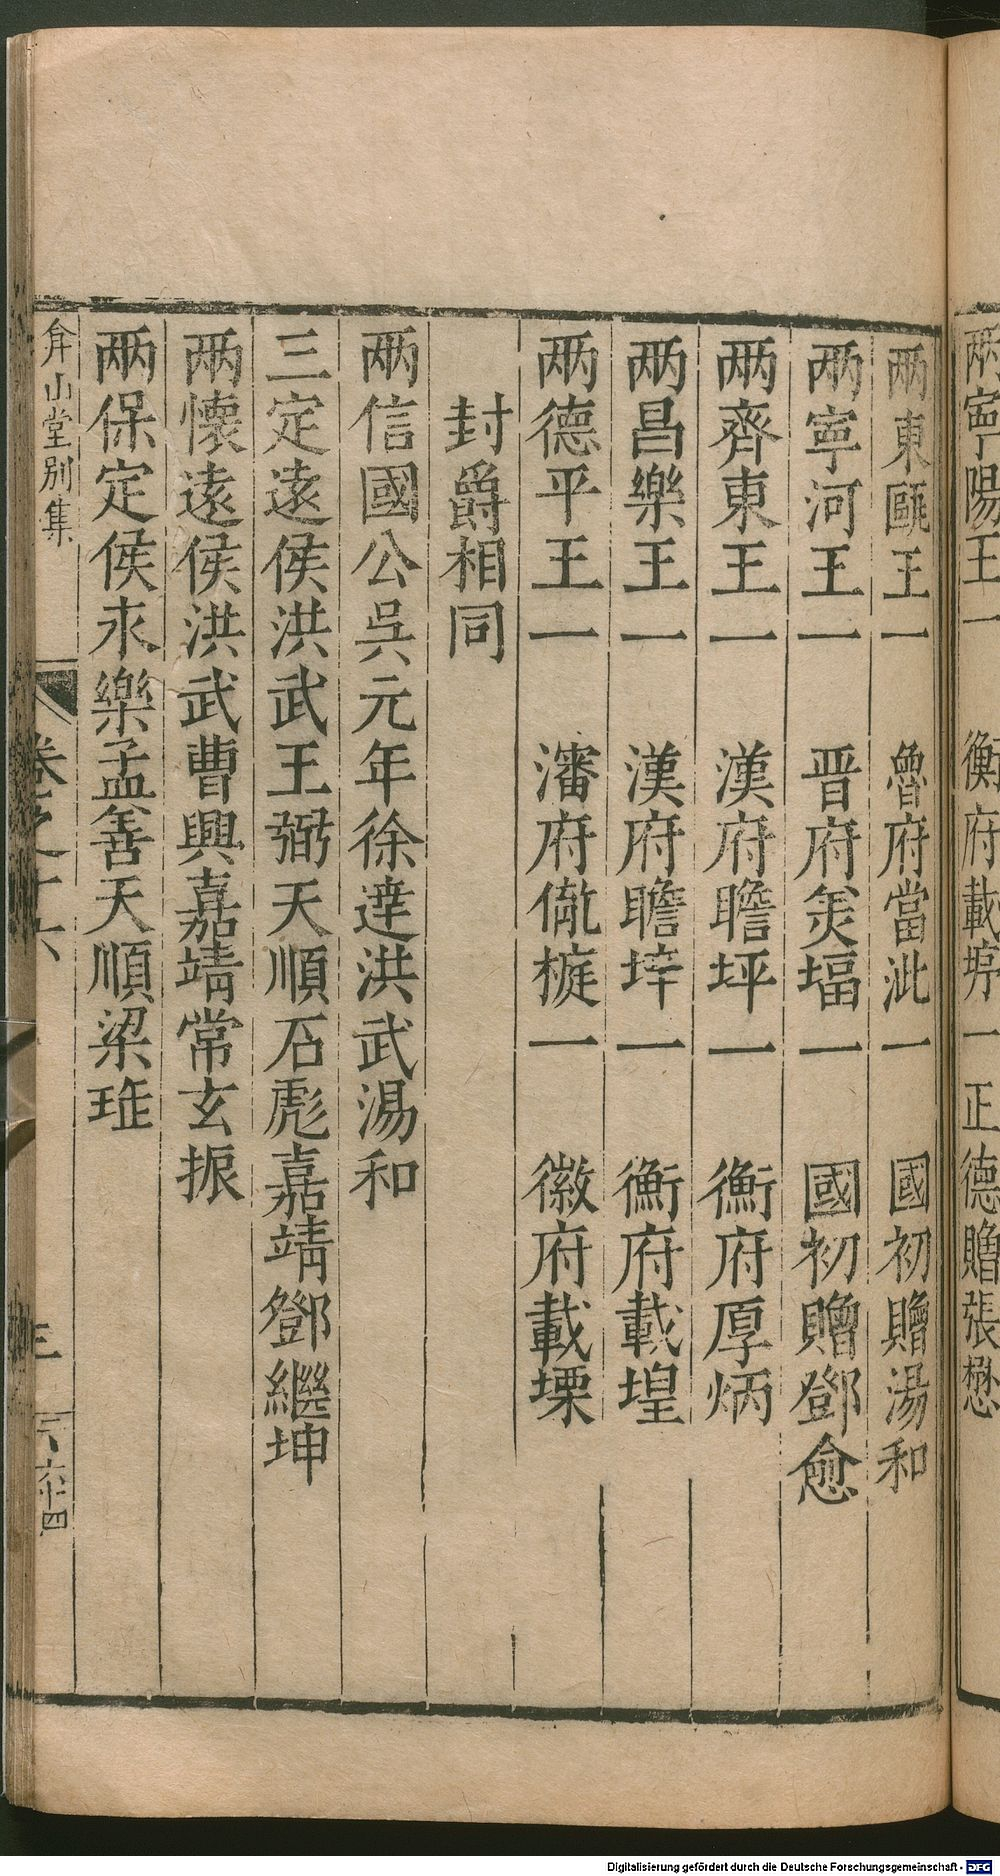 兩寧陽王一 衡府載㙔一 正德贈張懋
兩東甌王一 魯府當沘一 國初贈湯和
兩寧河王一 晋府𤇺堛一 國初贈鄧愈
兩齊東王一 漢府瞻坪一 衡府厚炳
兩昌樂王一 漢府瞻垶一 衡府載堭
兩德平王一 瀋府㒞榳一 徽府載塛
封爵相同
兩信國公吳元年徐達洪武湯和
三定遠侯洪武王弼天順石彪嘉靖鄧繼坤
兩懷遠侯洪武曹興嘉靖常玄振
兩保定侯永樂孟善天順梁珤
弇山堂別集
卷之十六
三
六六十四
Digitalisierung gefördert durch die Deutsche Forschungsgemeinschaft - DFG